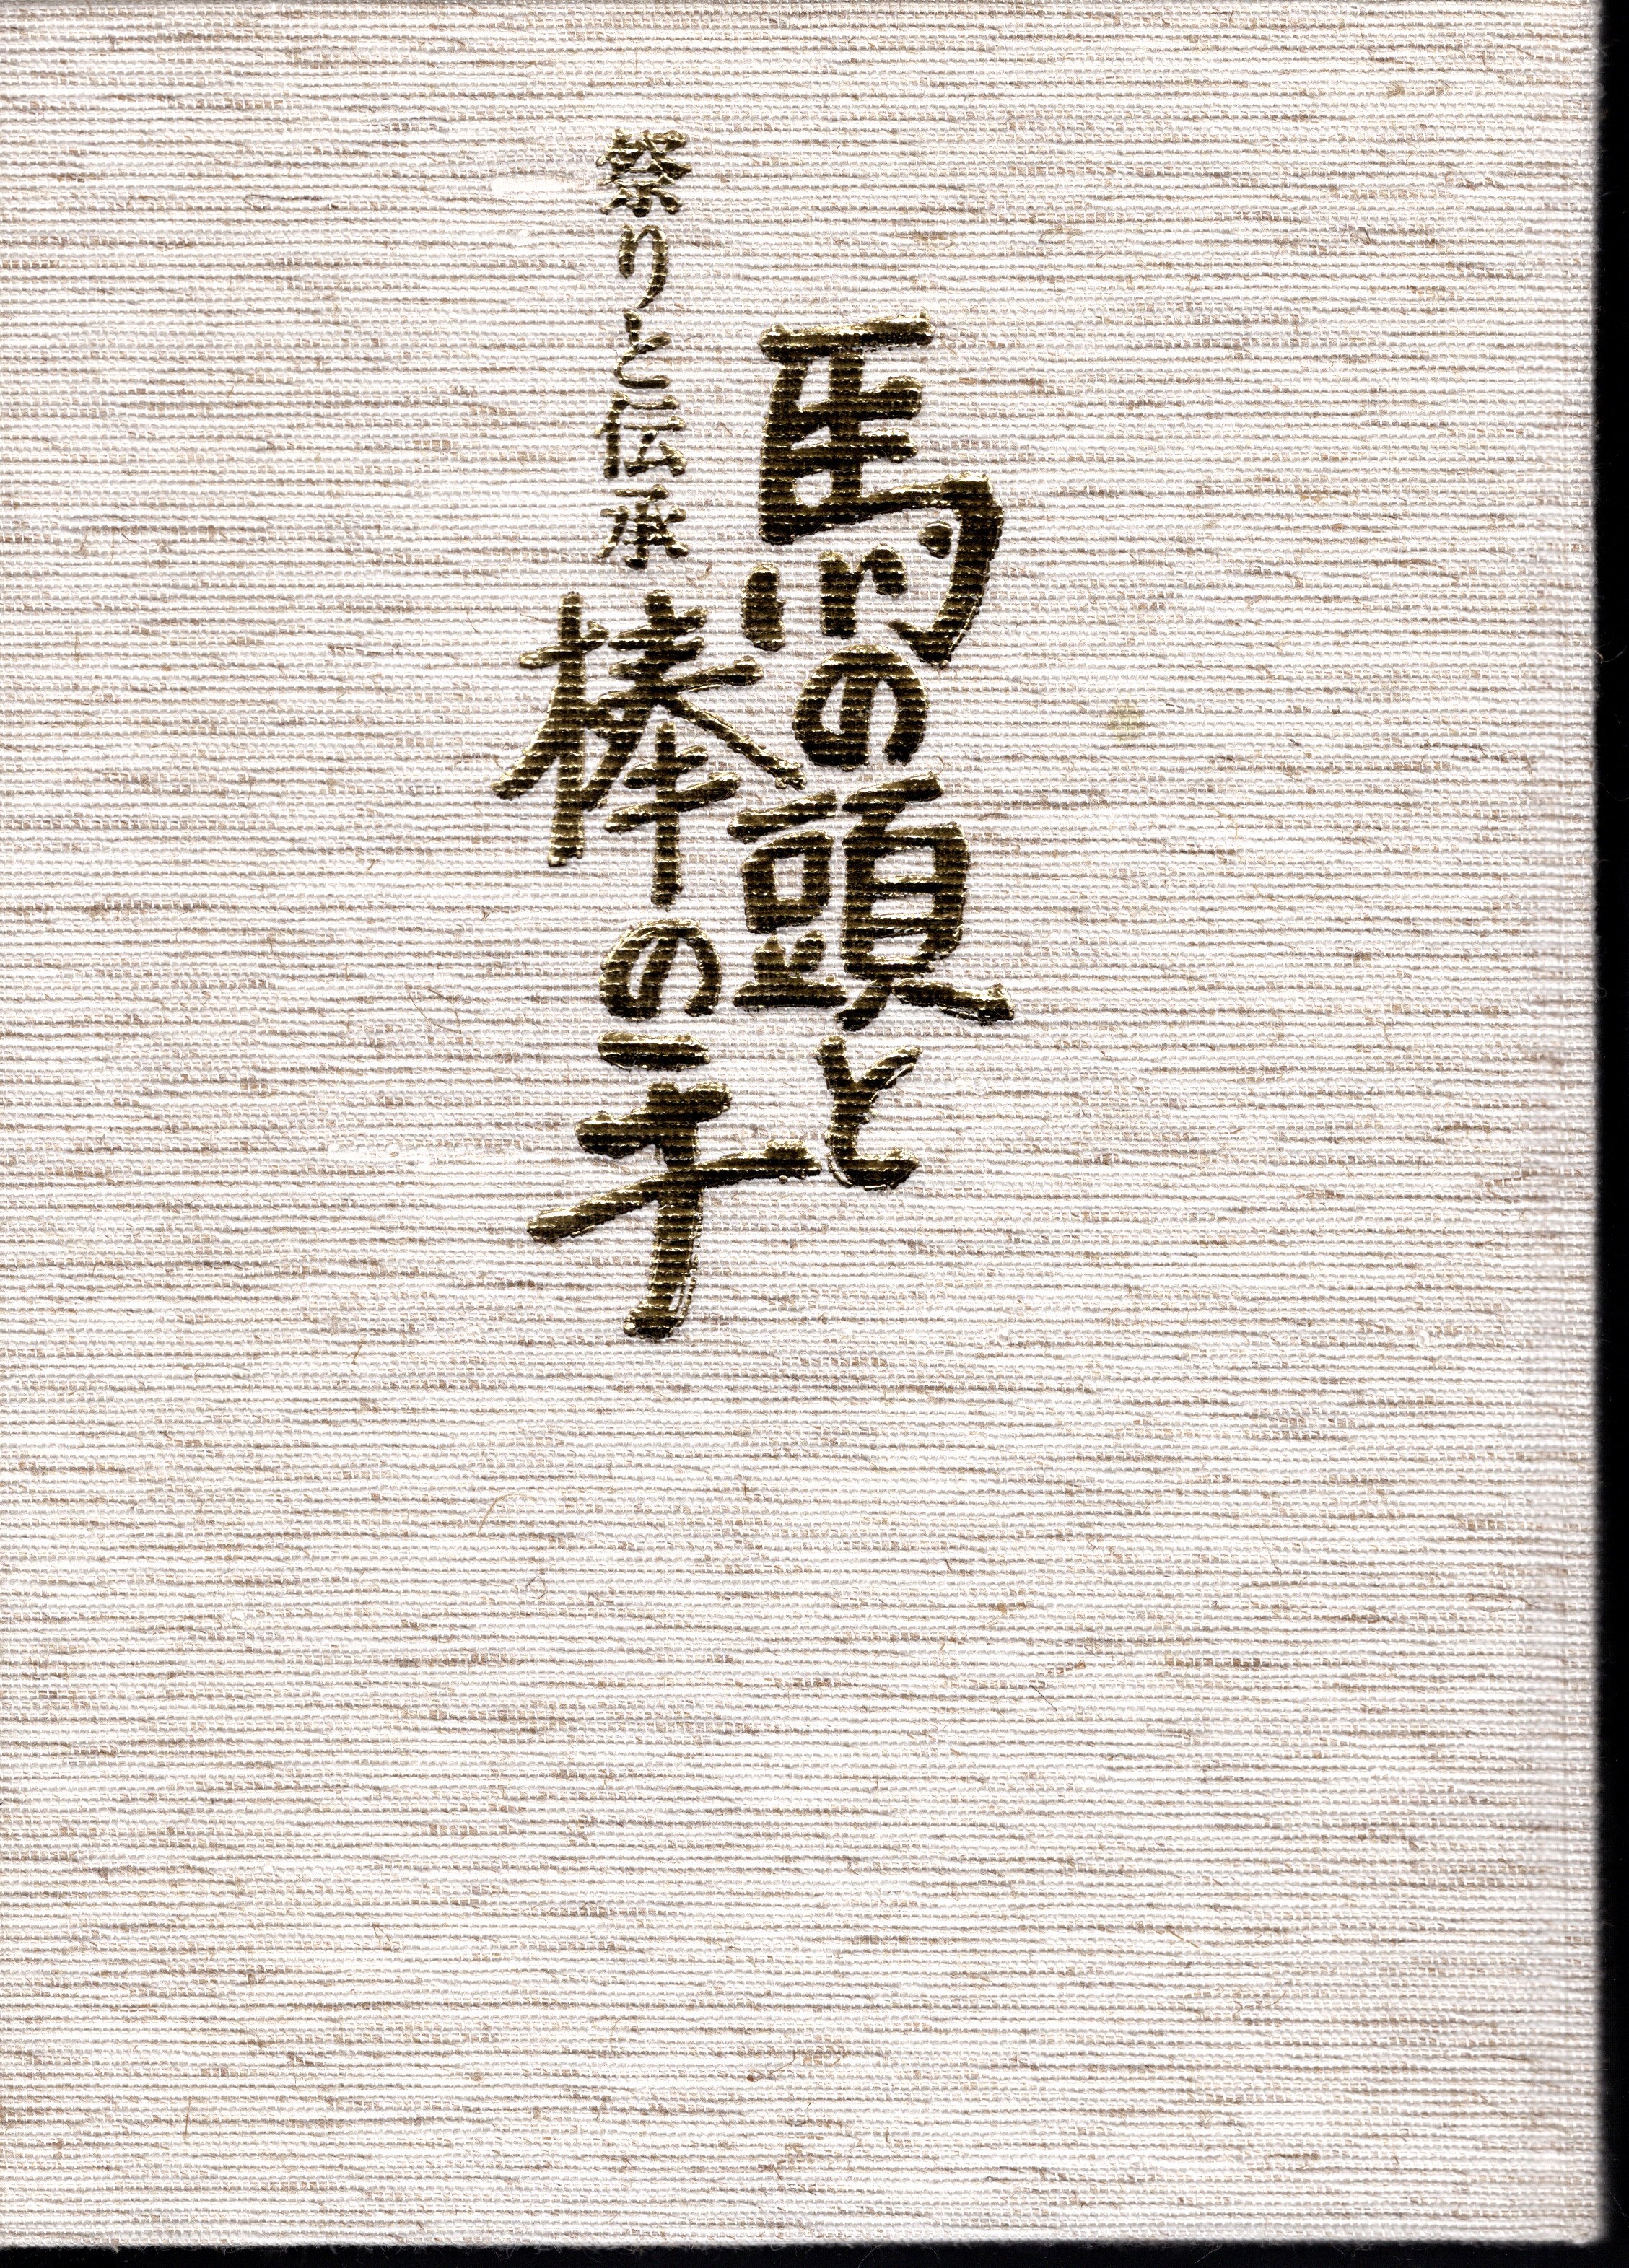 馬の頭と
祭りと伝承
棒の手